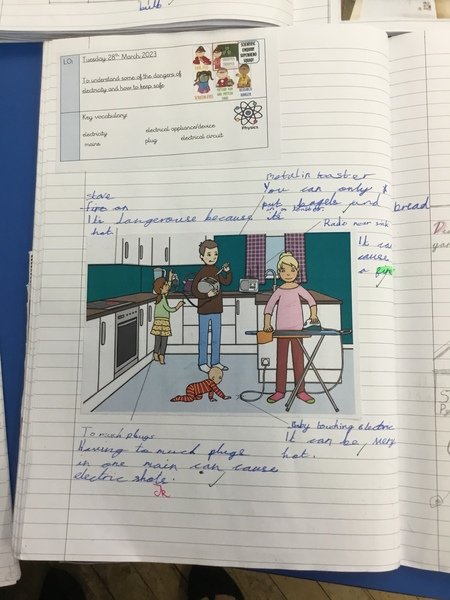 bulb
LO:
Tuesday 28th March 2023
To understand some of the dangers of
electricity and how to keep safe
Key vocabulary:
electricity
electrical appliance/device
mains
plug
electrical circuit
Physics
metal in toaster
You can only
put bagels and bread
in a toaster.
stove
on
Its dangerouse because its
hot.
Radio near sink
It can
cause
a fire
To much plugs
Having to much plugs
in one main can cause
electric shots.
Baby touching electric
It can be very
hot.